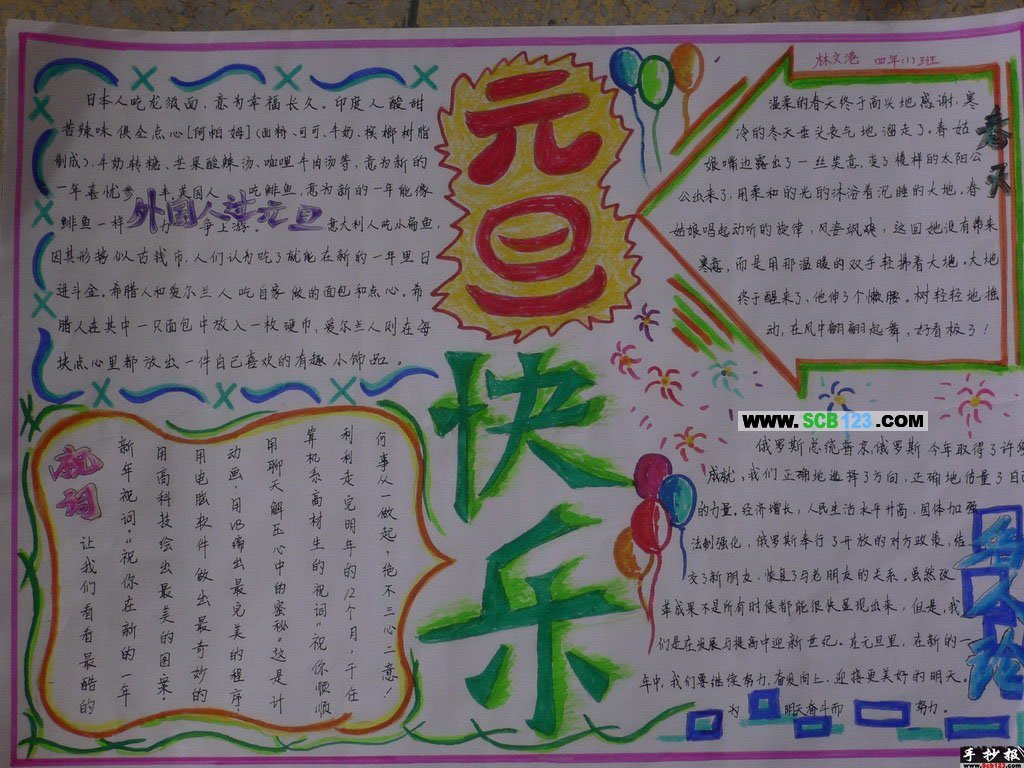 元旦
快乐
林文港 四年(1)班
日本人吃龙须面,意为幸福长久。印度人酸甜
苦辣味俱全点心[阿帕姆](面粉、可可、牛奶、槟榔树脂
制成)、牛奶转糖、芒果酸辣汤、咖喱牛肉汤等,意为新的
一年喜忧参半。美国人 吃鲱鱼,意为新的一年能像
鲱鱼一样 力争上游。 意大利人吃小扁鱼,
外国人过元旦
因其形势似古钱币,人们认为吃了就能在新的一年里日
进斗金。希腊人和爱尔兰人吃自家做的面包和点心。希
腊人在其中一只面包中放入一枚硬币,爱尔兰人则在每
块点心里都放出一件自己喜欢的有趣小饰品。
春天
温柔的春天终于高兴地感谢,寒
冷的冬天垂头丧气地溜走了。春姑
娘嘴边露出了一丝笑意,
公出来了,用柔和的光的沐浴着沉睡的大地。春
姑娘唱起动听的旋律,风姿飒爽,这回她没有带来
寒意,而是用那温暖的双手轻拂着大地。大地
终于醒来了,他伸了个懒腰。树轻轻地摇
动,在风中翩翩起舞,好看极了!
祝词
让我们看看最酷的
新年祝词:“祝你在新的一年
用高科技绘出最美的图案。
用电脑软件做出最奇妙的
动画,用VB编出最完美的程序
用聊天解压心中的蜜秘。”这是计
算机系高材生的祝词“祝你顺顺
利利走完明年的12个月,干任
何事从一做起,绝不三心二意!
WWW.SCB123.COM
俄罗斯总统普京:俄罗斯今年取得了许多
成就,我们正确地选择了方向,正确地估量了自己
的力量。经济增长,人民生活水平升高,团体加强
法制强化,俄罗斯奉行了开放的对方政策,结
交了新朋友,恢复了与老朋友的关系。虽然改
革成果不是所有时候都能很快显现出来,但是,我
们是在发展与提高中迎新世纪。在元旦里,在新的一
年中,我们要继续努力,奋发向上,迎接更美好的明天。
为 明天奋斗而 努力。
名人论
手抄报
www.SCB123.com